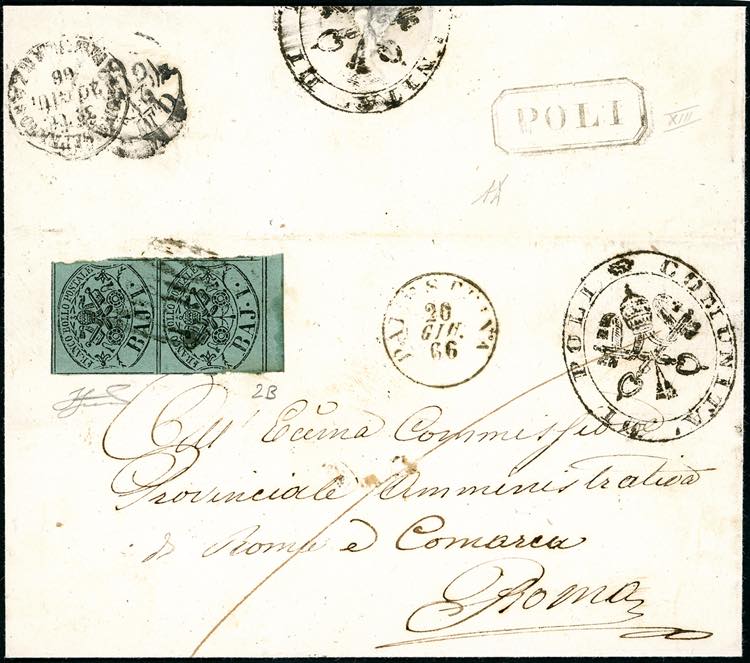 POLI
XIII
FRANCO BOLLO POSTALE
1·BAJ
FRANCO BOLLO POSTALE
1·BAJ
2B
PALESTRINA
20
GIU.
66
COMUNITA' DI POLI
All' Eccma Commissione
Provinciale Amministrativa
di Roma e Comarca
Roma